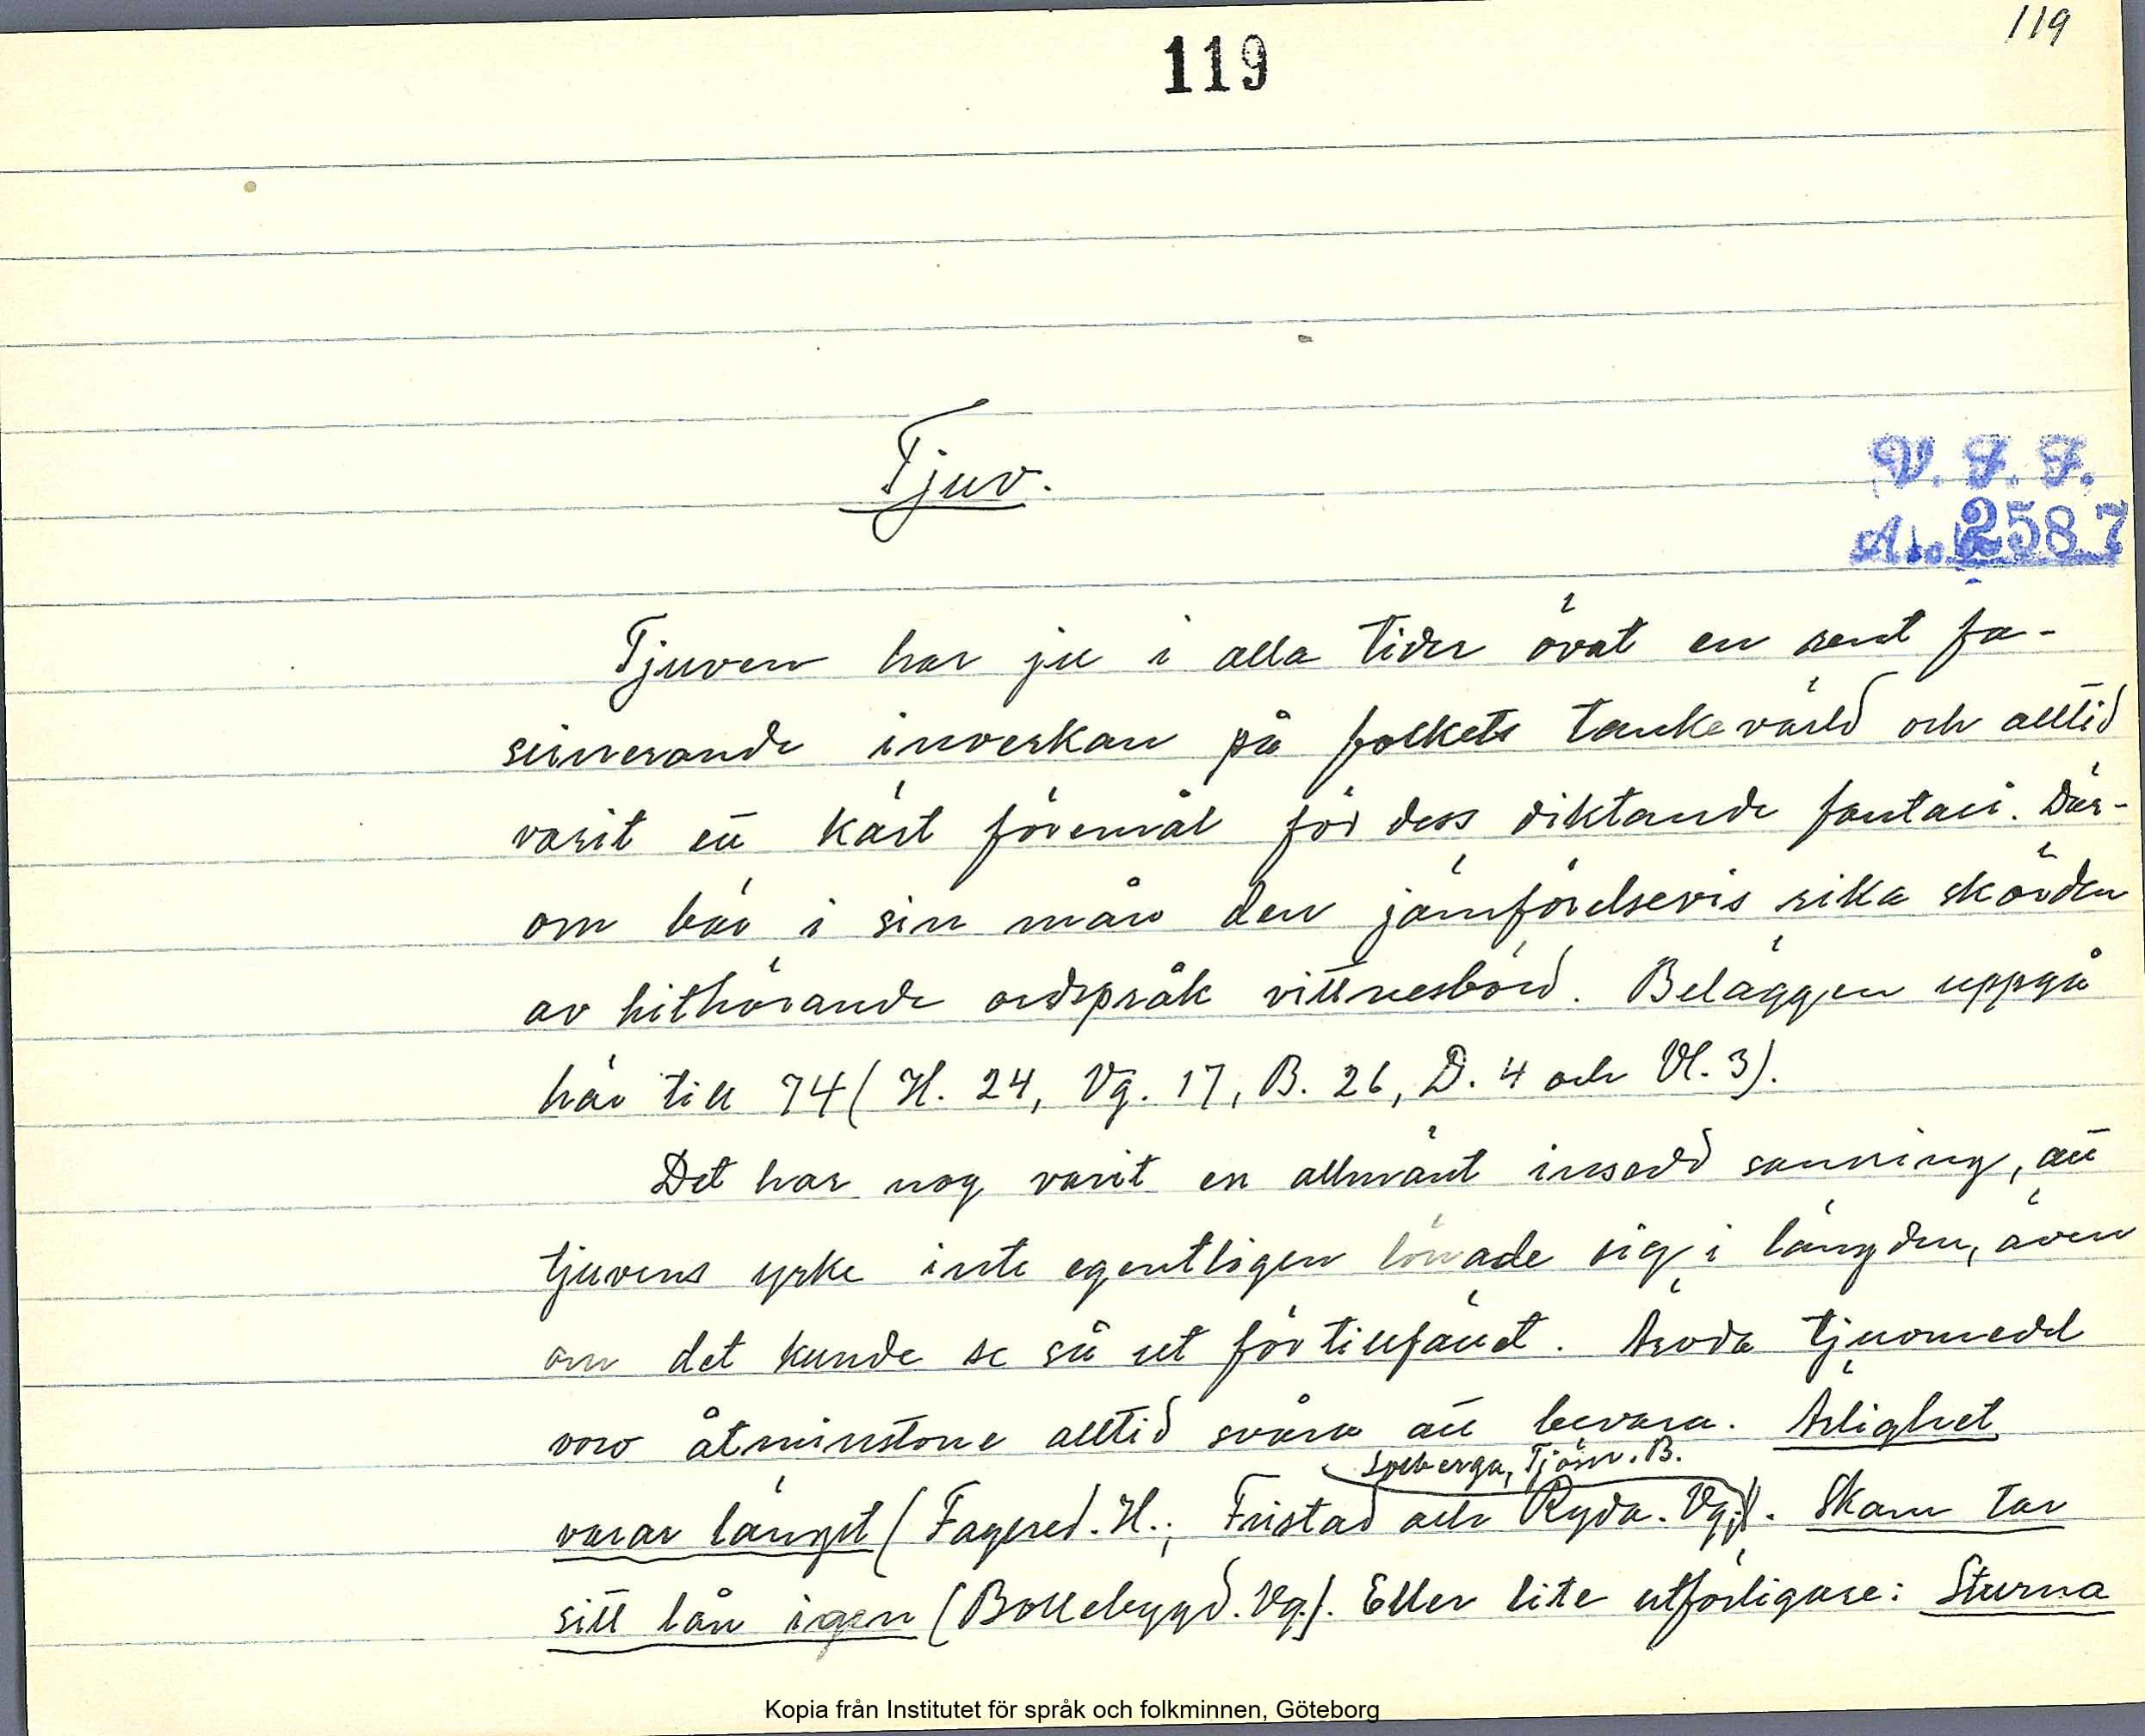 119
119
Tjuv.
V. F. F.
Acc. 2587
Tjuven har ju i alla tider övat en rent fa-
scinerande inverkan på folkets tankevärld och alltid
varit ett kärt föremål för dess diktande fantasi. Där-
om bär i sin mån den jämförelsevis rika skörden
av hithörande ordspråk vittnesbörd. Beläggen uppgå
här till 74 (H. 24, Vg. 17, B. 26, D. 4 och Vl. 3).
Det har nog varit en allmänt insedd sanning, att
tjuvens yrke inte egentligen lönade sig i längden, även
om det kunde se så ut för tillfället. Ärvda tjuvmedel
voro åtminstone alltid svåra att bevara. Ärlighet
Solberga, Tjörn. B.
varar längst (Fagered. H.; Fristad och Ryda. Vg.;). Skam tar
sitt lån igen (Bollebygd. Vg.). Eller lite utförligare: Sturna
Kopia från Institutet för språk och folkminnen, Göteborg